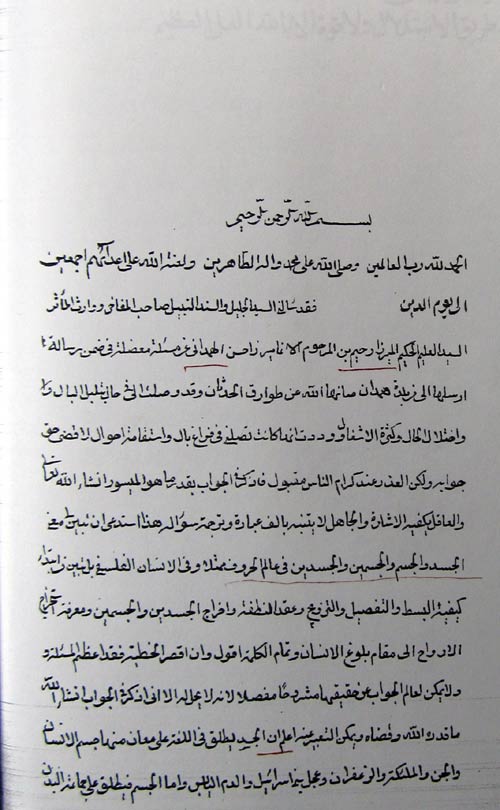 بسم الله الرحمن الرحيم
الحمد لله رب العالمين وصلى الله على محمد واله الطاهرين ولعنة الله على اعدائهم اجمعين
الى يوم الدين فقد سالني السيد الجليل والسند النبيل صاحب المفاخر ووارث المآثر
السيد العليم الحكيم الميرزا رحيم بن المرحوم الاقا ميرزا حسن الهمداني عن مسئلة معضلة في ضمن رسالة
ارسلها الى من بلدة همدان صانها الله عن طوارق الحدثان وقد وصلت الي في حال تبلبل البال
واختلال الحال وكثرة الاشغال ووددت انها كانت تصلني في فراغ بال واستقامة احوال لاقضي حق
جوابه ولكن العذر عند كرام الناس مقبول فاذكر الجواب بقدر ما هو الميسور انشاء الله تعالى
والعاقل يكفيه الاشارة والجاهل لا يتنبه بالف عبارة وترجمة سؤاله هذا استدعي ان تبين لي معنى
الجسد والجسم والجسمين والجسدين في عالم الحروف مثلا وفي الانسان الفلسفي بل تبين
كيفية البسط والتفصيل والتزويج وعقد النطفة واخراج الجسدين والجسمين ومعرفة
الارواح الى مقام بلوغ الانسان وتمام الكلمة اقول وان اقصر الخطبة فقد اعظم المسئلة
ولا يمكن لعالم الجواب عن حقيقتها مشروحا مفصلا لانه لا يحل له الا اني اذكر الجواب انشاء الله
ما قدره الله وقضاه ويمكن التعبير عنه اعلم ان الجسد يطلق في اللغة على معان منها جسم الانسان
والجن والملئكة والزعفران وعجل بني اسرائيل والدم اليابس واما الجسم فيطلق على جماعة البدن